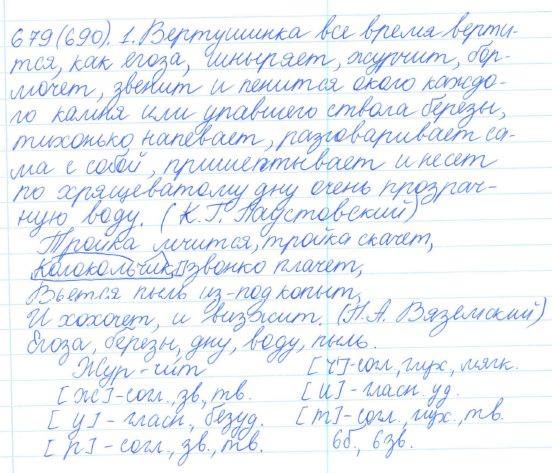 679(690). 1. Вертушинка все время верти-
тся, как егоза, шныряет, журчит, бор-
мочет, звенит и пенится около каждо-
го камня или упавшего ствола березы,
тихонько напевает, разговаривает са-
ма с собой, пришептывает и несет
по хрящеватому дну очень прозрач-
ную воду. (К.Г. Паустовский)
Тройка мчится, тройка скачет,
Колокольчик звонко плачет,
Вьется пыль из-под копыт,
И хохочет, и визжит. (П.А. Вяземский)
Егоза, березы, дну, воду, пыль.
Жур-чит
[Ж]-согл., зв., тв.
[у]-гласн., безуд.
[р]-согл., зв., тв.
[ч]-согл., глух., мягк.
[и]-гласн. уд.
[т]-согл., глух., тв.
6б., 6зв.